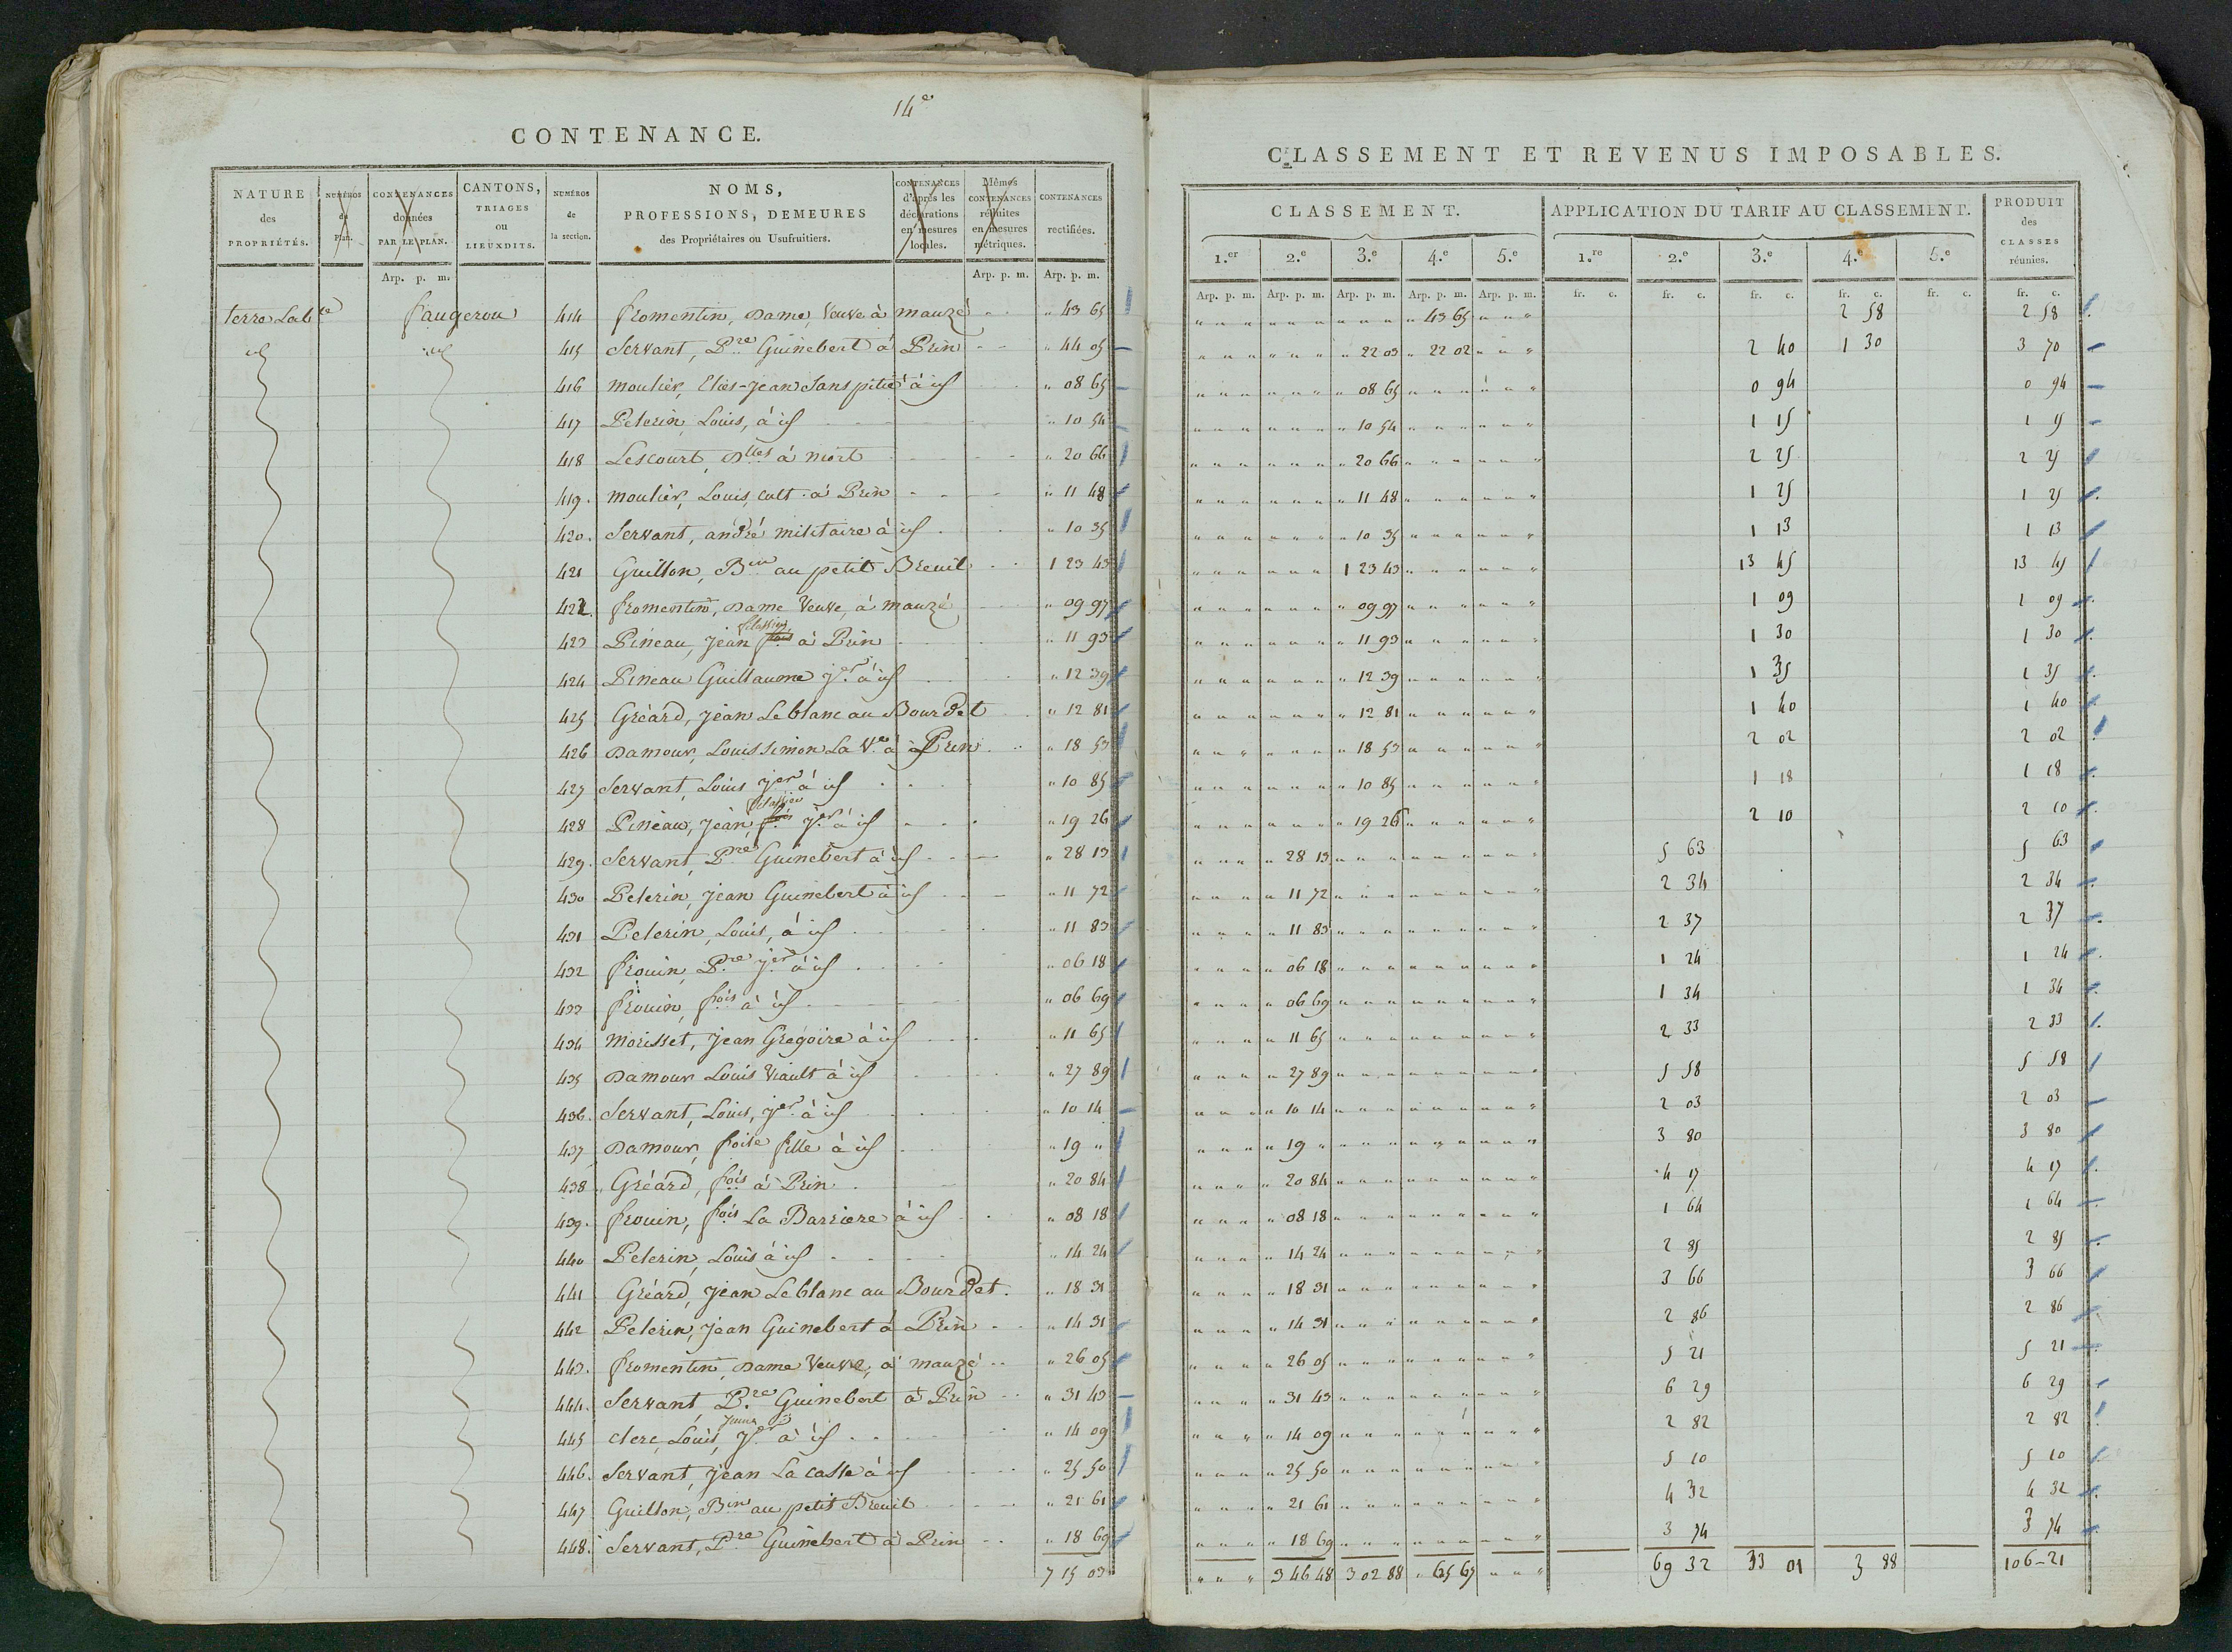 14e
CONTENANCE.
NATURE des PROPRIÉTÉS.
NUMÉROS du Plan.
CONTENANCES données PAR LE PLAN.
CANTONS, TRIAGES ou LIEUXDITS.
NUMÉROS de la section.
NOMS, PROFESSIONS, DEMEURES des Propriétaires ou Usufruitiers.
CONTENANCES d'après les déclarations en mesures locales.
Mêmes CONTENANCES réduites en mesures métriques.
CONTENANCES rectifiées.
Arp. p. m. Arp. p. m. Arp. p. m.
terre Lable faugerou 414 fromentin, Dame, Veuve à mauzé " 43 65
id id 415 Servant, Pre Guinebert à Prin " 44 05
416 moulier, Elies-Jean Sanspitié à id " 08 65
417 Pelerin, Louis, à id " 10 54
418 Lescourt, Dlles à niort " 20 66
419. moulier, Louis, cult. à Prin " 11 48
420. Servant, andré militaire à id " 10 35
421 Guillon, Bin au petit Breuil 1 23 43
422. fromentin, Dame Veuve, à mauzé " 09 97
423 Pineau, Jean à Prin " 11 93
424 Pineau Guillaume Jer à id " 12 39
425 Gréard, Jean Leblanc au Bourdet " 12 81
426 Damour, Louis Simon La Ve à Prin " 18 53
427 Servant, Louis Jer à id " 10 85
428 Pineau, Jean, Jer à id " 19 26
429. Servant, Pre Guinebert à id " 28 13
430 Pelerin, Jean Guinebert à id " 11 72
431 Pelerin, Louis, à id " 11 83
432 frouin, Pre Jer à id " 06 18
433 frouin, fois à id " 06 69
434 Morisset, Jean Grégoire à id " 11 65
435 Damour Louis Viault à id " 27 89
436. Servant, Louis, Jer à id " 10 14
437 Damour, foise fille à id " 19 "
438 Gréard, fois à Prin " 20 84
439. frouin, fois La Barriere à id " 08 18
440 Pelerin, Louis à id " 14 24
441 Gréard, Jean Leblanc au Bourdet. " 18 31
442 Pelerin, Jean Guinebert à Prin " 14 31
443. fromentin, Dame Veuve, à mauzé " 26 05
444. Servant Pre Guinebert à Prin " 31 43
445 clerc, Louis, Jer à id " 14 09
446. Servant, Jean La casse à id " 25 50
447 Guillon, Bin au petit Breuil " 21 61
448. Servant, Pre Guinebert à Prin " 18 69
7 15 03
CLASSEMENT ET REVENUS IMPOSABLES.
CLASSEMENT. APPLICATION DU TARIF AU CLASSEMENT. PRODUIT des CLASSES réunies.
1.er 2.e 3.e 4.e 5.e 1.re 2.e 3.e 4.e 5.e
Arp. p. m. Arp. p. m. Arp. p. m. Arp. p. m. Arp. p. m. fr. c. fr. c. fr. c. fr. c. fr. c. fr. c.
" 43 65 2 58 2 58
" 22 03 " 22 02 2 40 1 30 3 70
" 08 65 0 94 0 94
" 10 54 1 15 1 15
" 20 66 2 25 2 25
" 11 48 1 25 1 25
" 10 35 1 13 1 13
1 23 43 13 45 13 45
" 09 97 1 09 1 09
" 11 93 1 30 1 30
" 12 39 1 35 1 35
" 12 81 1 40 1 40
" 18 53 2 02 2 02
" 10 85 1 18 1 18
" 19 26 2 10 2 10
" 28 13 5 63 5 63
" 11 72 2 34 2 34
" 11 83 2 37 2 37
" 06 18 1 24 1 24
" 06 69 1 34 1 34
" 11 65 2 33 2 33
" 27 89 5 58 5 58
" 10 14 2 03 2 03
" 19 " 3 80 3 80
" 20 84 4 17 4 17
" 08 18 1 64 1 64
" 14 24 2 85 2 85
" 18 31 3 66 3 66
" 14 31 2 86 2 86
" 26 05 5 21 5 21
" 31 43 6 29 6 29
" 14 09 2 82 2 82
" 25 50 5 10 5 10
" 21 61 4 32 4 32
" 18 69 3 74 3 74
3 46 48 3 02 88 " 65 67 69 32 33 01 3 88 106-21